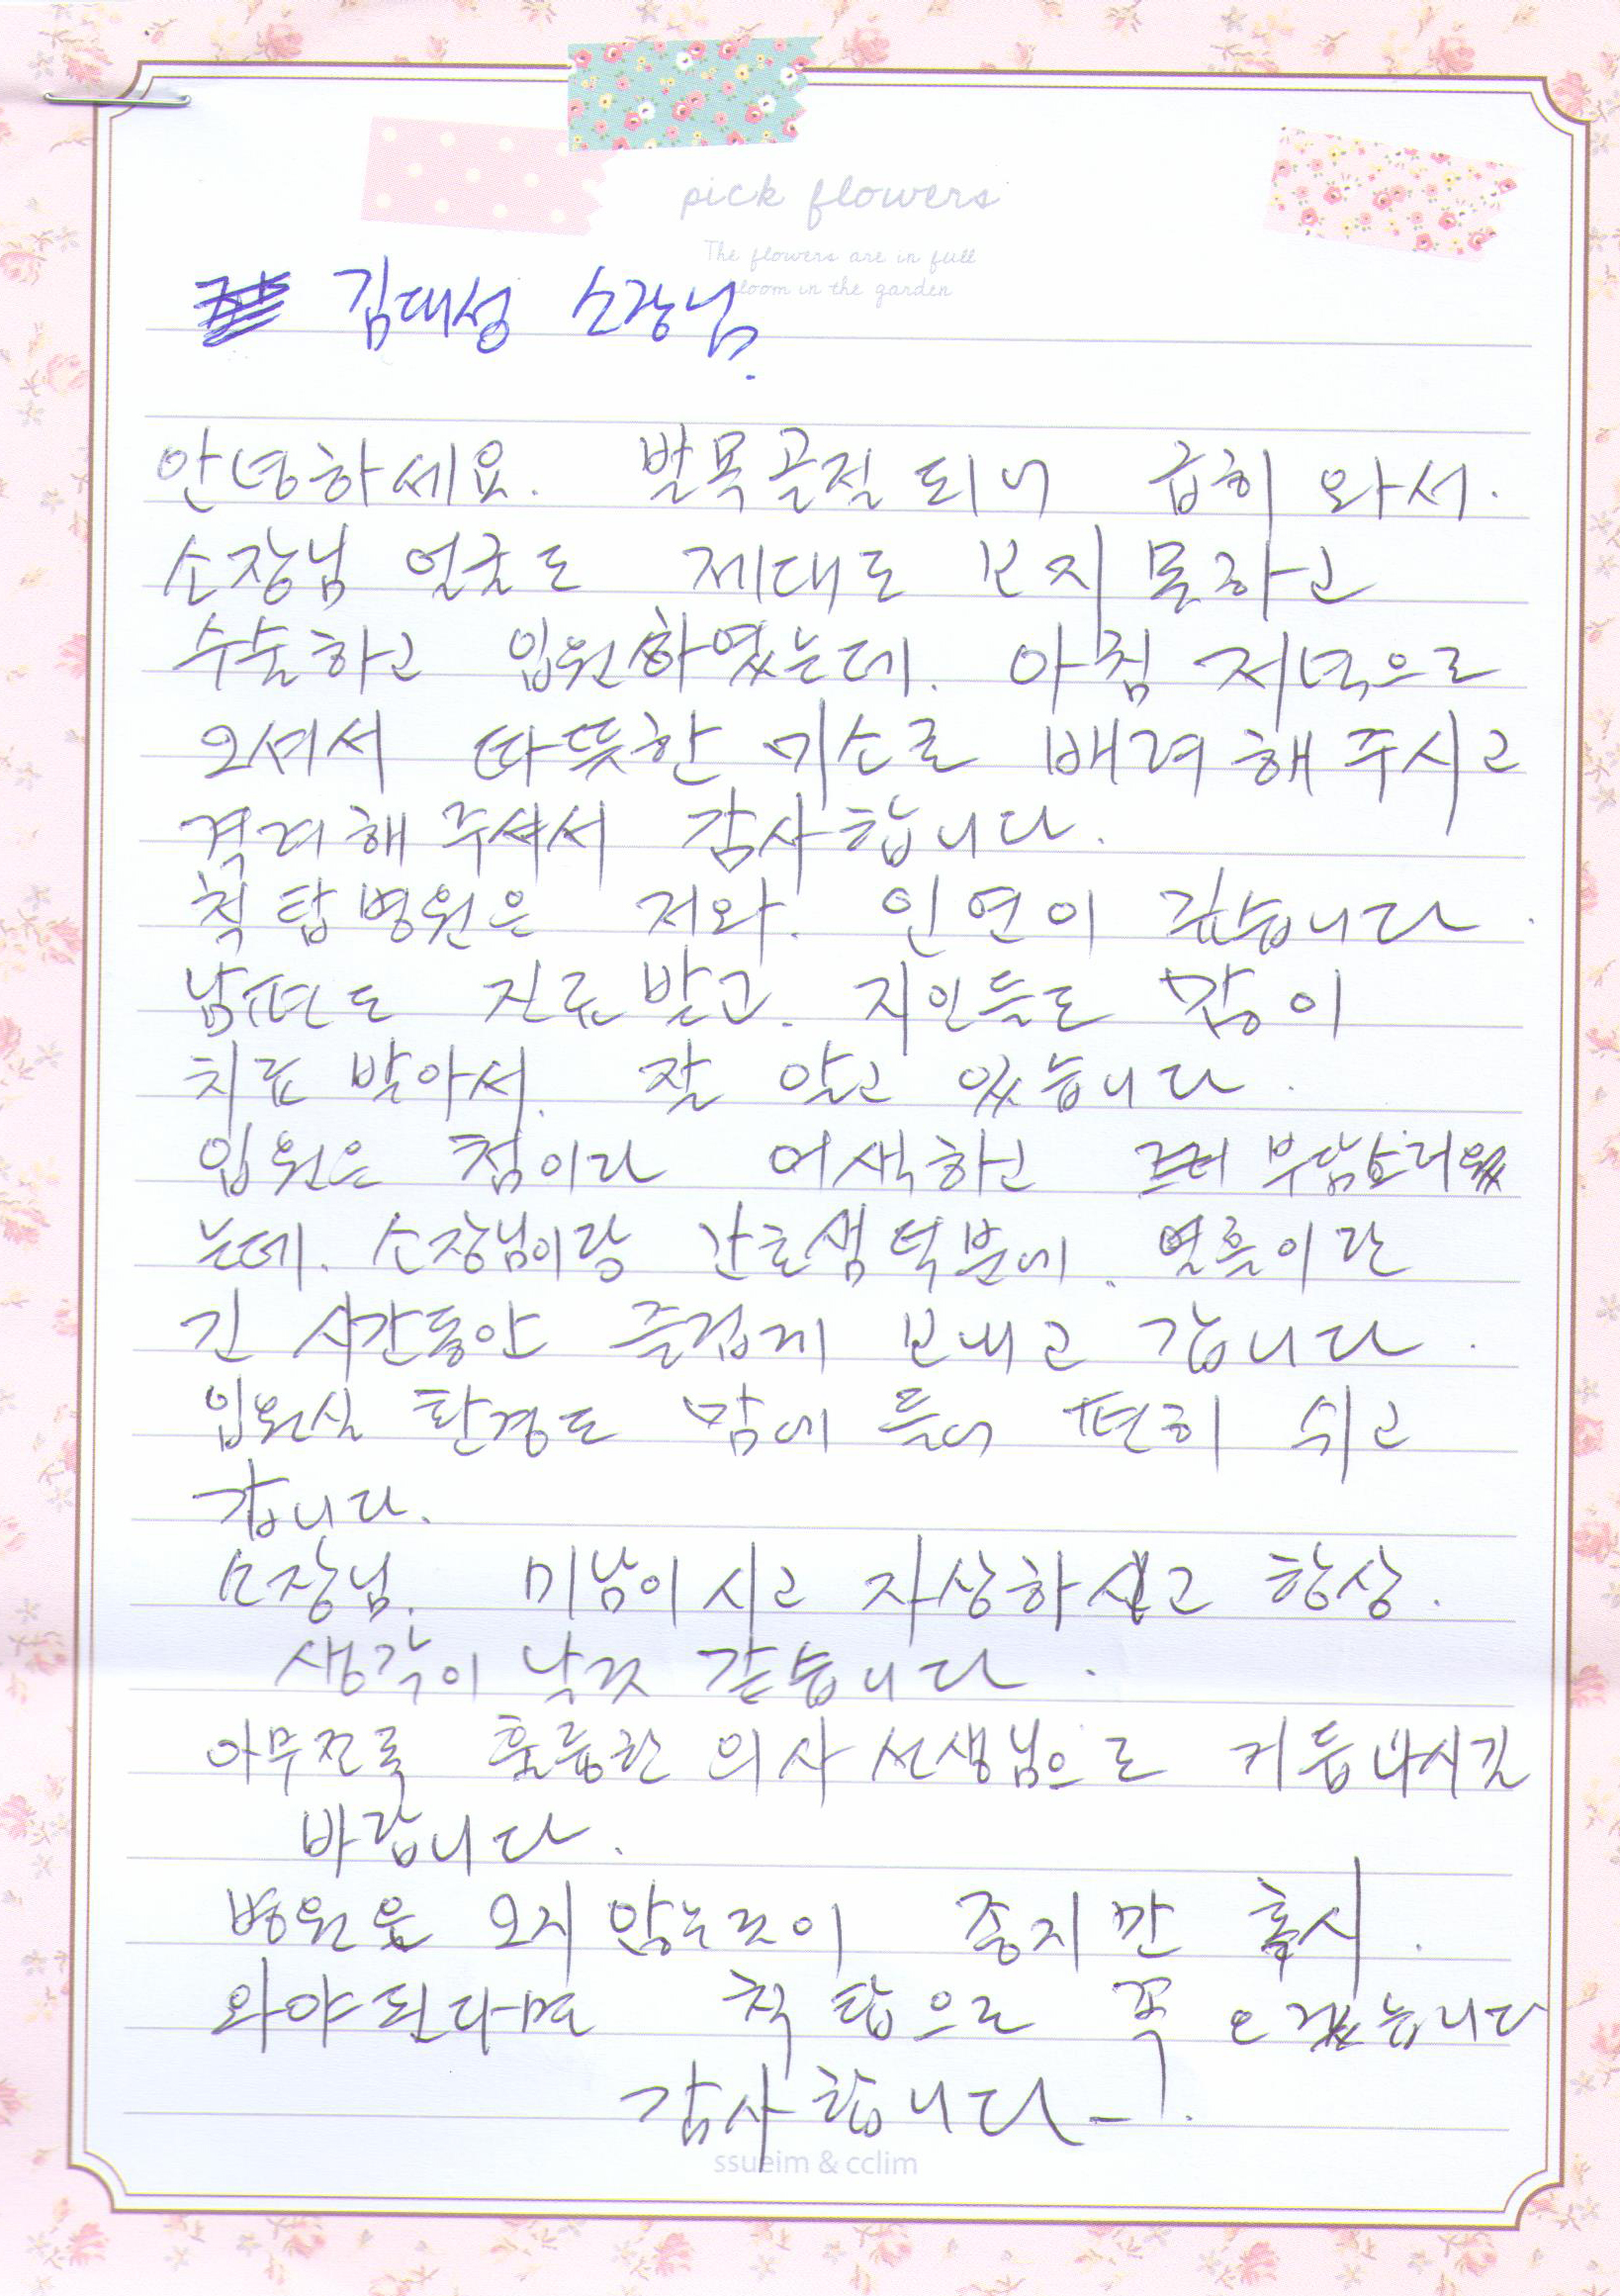 pick flowers
The flowers are in full
bloom in the garden
김대성 소장님.
안녕하세요. 발목골절 되니 급히 와서.
소장님 얼굴도 제대로 보지 못하고
수술하고 입원하였는데. 아침 저녁으로
오셔서 따뜻한 미소로 배려해 주시고
격려해 주셔서 감사합니다.
척탑병원은 저와. 인연이 깊습니다.
남편도 진료받고. 지인들도 많이
치료 받아서. 잘 알고 있습니다.
입원은 첨이라 어색하고 부담스러웠
는데. 소장님이랑 간호샘 덕분에. 열흘이란
긴 시간동안 즐겁게 보내고 갑니다.
입원실 환경도 맘에 들어 편히 쉬고
갑니다.
소장님. 미남이시고 자상하시고 항상.
생각이 날것 같습니다.
아무쪼록 훌륭한 의사 선생님으로 거듭나시길
바랍니다.
병원을 오지 않는것이 좋지만 혹시.
와야 된다면 척탑으로 꼭 오겠습니다
감사합니다-!.
ssueim & cclim